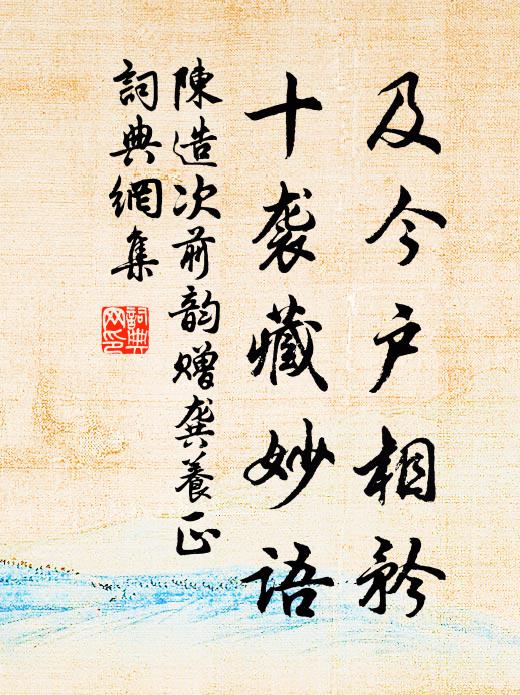 及今户相矜
十袭藏妙语
陳造次前韵赠龚養正
詞典網集
詞典
网印